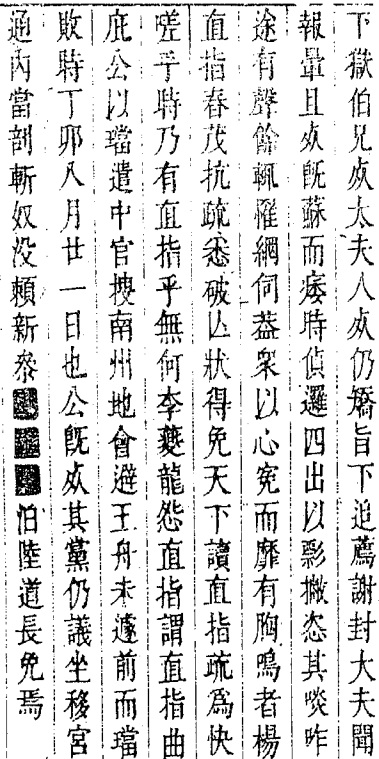 下獄伯兄㱙太夫人㱙仍矯旨下追薦謝封大夫聞
報暈且㱙旣蘇而痿時偵邏四出以影撇恣其啖咋
途有聲餘輒罹網伺葢衆以心寃而靡有胸鳴者楊
直指春茂抗疏悉破亾狀得免天下讀直指疏爲快
嗟乎時乃有直指乎無何李夔龍怨直指謂直指曲
庇公以璫遣中官搜南州地會避王舟未遽前而璫
敗時丁卯八月廿一日也公旣㱙其黨仍議坐移宮
通內當剖斬奴没賴新叅怕陸道長免焉